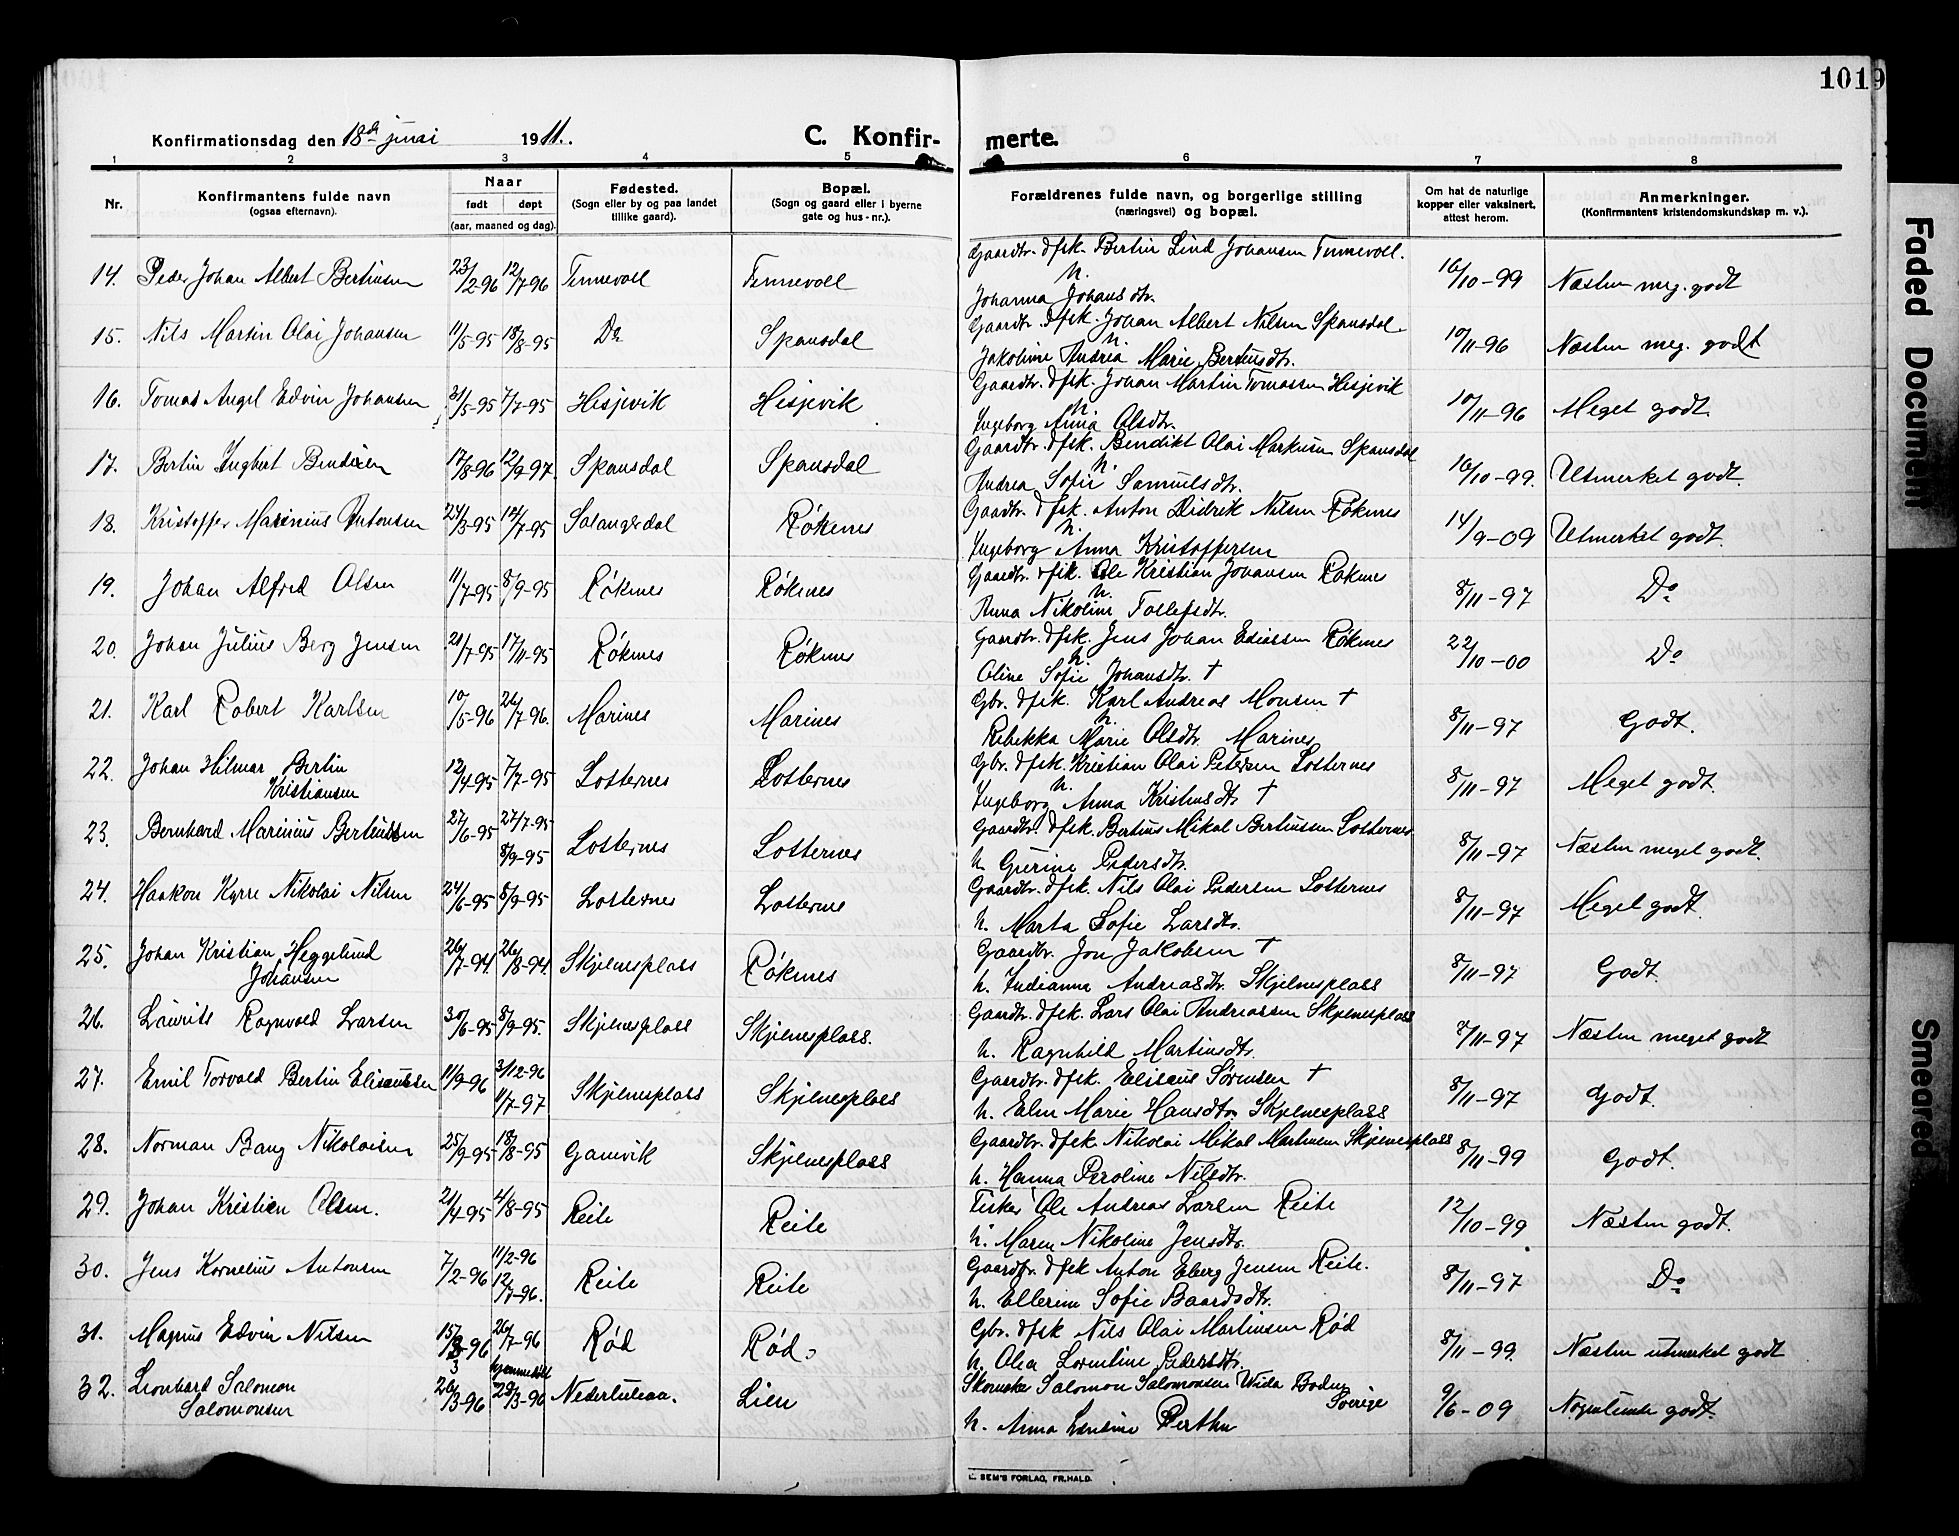 1019
Konfirmationsdag den 18de juni 1911. C. Konfirmerte.
1 2 3 4 5 6 7 8
Nr. Konfirmantens fulde navn (ogsaa efternavn). Naar født døpt (aar, maaned og dag). Fødested. (Sogn eller by og paa landet tillike gaard). Bopæl. (Sogn og gaard eller i byerne gate og hus-nr.). Forældrenes fulde navn, og borgerlige stilling (næringsvei) og bopæl. Om hat de naturlige kopper eller vaksinert, attest herom. Anmerkninger. (Konfirmantens kristendomskundskap m. v.).
Gaardbr. & fsk. Bertin Lind Johansen Tennevoll.
14. Peder Johan Albert Bertinsen 23/2-96 12/7-96 Tennevoll Tennevoll h. 16/10-99 Næsten meg. godt
Johanna Johansdtr.
Gaardbr. & fsk. Johan Albert Nilsen Spansdal
15. Nils Martin Olai Johansen 11/5-95 18/8-95 Do Spansdal h. 10/11-96 Næsten meg. godt
Jakobine Andrea Marie Bertensdtr.
Gaardbr. & fsk. Johan Martin Tomassen Hesjevik
16. Tomas Angel Edvin Johansen 31/5-95 7/7-95 Hesjevik Hesjevik h. 10/11-96 Meget godt
Ingeborg Anna Olsdtr.
Gaardbr. & fsk. Bendikt Olai Markusen Spansdal
17. Bertin Ingbert Bendixen 17/8-96 12/9-97. Spansdal Spansdal h. 16/10-99. Utmerket godt.
Andrea Sofie Samuelsdtr.
Gaardbr. & fsk. Anton Didrik Nilsen Røkenes
18. Kristoffer Marinius Antonsen 24/3-95 14/7-95 Salangsdal Røkenes h. 14/9-09 Utmerket godt.
Ingeborg Anna Kristoffersen
Gaardbr. & fsk. Ole Kristian Johansen Røkenes
19. Johan Alfred Olsen 11/7-95 8/9-95 Røkenes Røkenes h. 8/11-97 Do
Anna Nikoline Tollefsdtr.
Gaardbr. & fsk. Jens Johan Esiassen Røkenes
20. Johan Julius Berg Jensen 21/7-95 17/11-95 Røkenes Røkenes h. 22/10-00 Do
Oline Sofie Johansdtr. †
Gbr. & fsk. Karl Andreas Monsen †
21. Karl Robert Karlsen 10/5-96 26/7-96. Marines Marines h. 8/11-97 Godt.
Rebekka Marie Olsdtr. Marines
Gbr. & fsk. Kristian Olai Petersen Lotternes
22. Johan Hilmar Bertin Kristiansen 12/4-95 7/7-95 Lotternes Lotternes h. 8/11-97 Meget godt.
Ingeborg Anna Kristensdtr †
Gaardbr. & fsk. Bertius Mikal Bertinssen Lotternes
23. Bernhard Marinius Bertinssen 27/6-95 27/7-95 8/9-95 Lotternes Lotternes 8/11-97 Næsten meget godt.
h. Gurine Pedersdtr.
Gaardbr. & fsk. Nils Olai Pedersen Lotternes
24. Haakon Kyrre Nikolai Nilsen 24/6-95 8/9-95 Lotternes Lotternes 8/11-97 Meget godt.
h. Marta Sofie Larsdtr.
Gaardbr. Jon Jakobsen †
25. Johan Kristian Heggelund Johansen 26/7-94 26/8-94 Skjelnesplass Røkenes 8/11-97 Godt.
h. Indianna Andreasdtr. Skjelnesplass
Gaardbr. & fsk. Lars Olai Andreassen Skjelnesplass
26. Laurits Ragnvald Larsen 30/6-95 8/9-95. Skjelnesplass Skjelnesplass. 8/11-97 Næsten meget godt
h. Ragnhild Martinsdtr.
Gaardbr. & fsk. Elisæus Sørensen †
27. Emil Torvald Bertin Elisæussen 11/9-96 3/12-96 11/7-97 Skjelnesplass Skjelnesplass 8/11-97 Godt.
h. Elen Marie Hansdtr Skjelnesplass
Gaardbr. & fsk Nikolai Mikal Martinsen Skjelnesplass
28. Norman Bang Nikolaisen 25/9-95 18/8-95 Gamvik Skjelnesplass 8/11-99 Godt.
h. Hanna Peroline Nilsdtr.
Fisker Ole Andreas Larsen Reite
29. Johan Kristian Olsen. 21/4-95 4/8-95 Reite Reite 12/10-99 Næsten godt.
h. Maren Nikoline Jensdtr.
Gaardbr. & fsk Anton Eberg Jensen Reite.
30. Jens Kornelius Antonsen 7/2-96 11/2-96 12/7-96. Reite Reite 8/11-97 Do
h. Ellerine Sofie Baardsdtr.
Gbr. & fsk Nils Olai Martinsen Rød
31. Magnus Edvin Nilsen 15/3-96 26/7-96 Rød Rød 8/11-99. Næsten utmerket godt
3 hjemmedøbt h. Olea Lorentine Pedersdtr.
Skomaker Salomon Salomonsen Wida Boden Sverige
32. Leonhard Salomon Salomonsen 26/3-96 29/3-96 Nederluleaa. Lien 9/6-09 Nogenlunde godt.
h. Anna
E. SEM'S FORLAG, FR.HALD.
Faded Document
Smeared